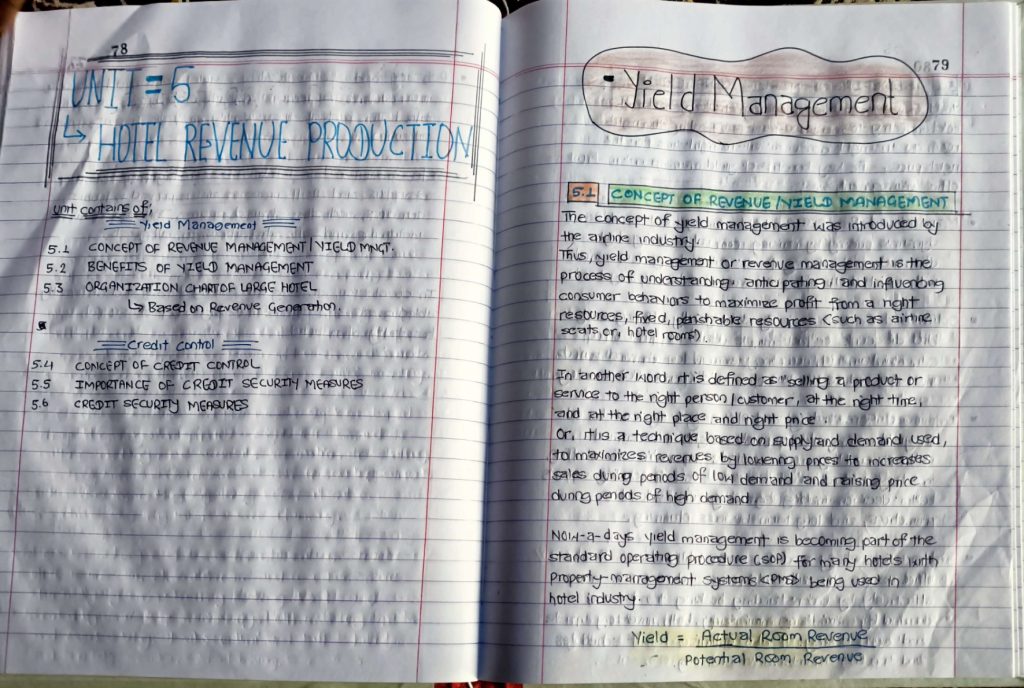 78
UNIT = 5
↳ HOTEL REVENUE PRODUCTION
Unit contains of;
Yield Management
5.1 CONCEPT OF REVENUE MANAGEMENT / YIELD MNGT.
5.2 BENEFITS OF YIELD MANAGEMENT
5.3 ORGANIZATION CHART OF LARGE HOTEL
↳ Based on Revenue Generation.
Credit Control
5.4 CONCEPT OF CREDIT CONTROL
5.5 IMPORTANCE OF CREDIT SECURITY MEASURES
5.6 CREDIT SECURITY MEASURES
79
Yield Management
5.1 CONCEPT OF REVENUE / YIELD MANAGEMENT
The concept of yield management was introduced by
the airline industry.
Thus, yield management or revenue management is the
process of understanding, anticipating, and influencing
consumer behaviors to maximize profit from a right
resources, fixed, perishable resources (such as airline
seats, or, hotel rooms).
In another word, it is defined as "selling a product or
service to the right person / customer, at the right time,
and at the right place and right price.
Or, it is a technique based on supply and demand used,
to maximizes revenues by lowering prices to increases
sales during periods of low demand and raising price
during periods of high demand.
Now-a-days yield management is becoming part of the
standard operating procedure (SOP) for many hotels with
Property-management systems (PMS) being used in
hotel industry.
Yield = Actual Room Revenue
Potential Room Revenue